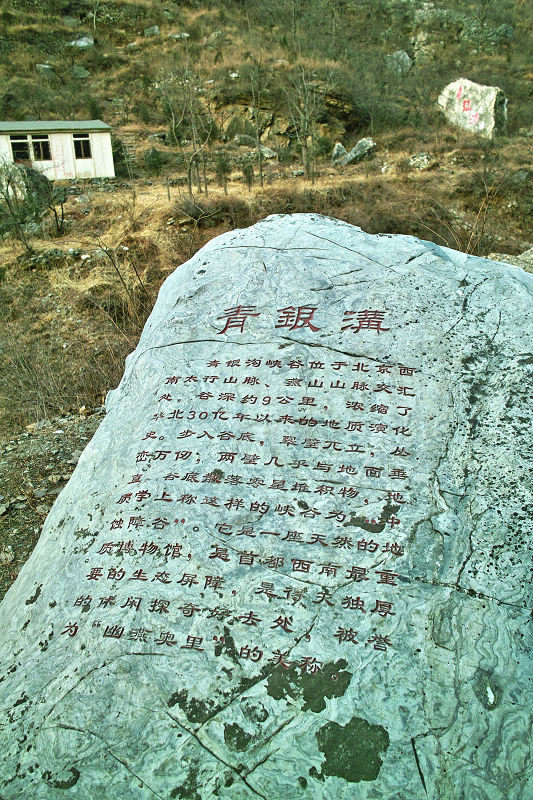 青銀溝
青银沟峡谷位于北京西
南太行山脉、燕山山脉交汇
处，谷深约9公里，浓缩了
华北30亿年以来的地质演化
史。步入谷底，裂壁兀立，丛
峦万仞；两壁几乎与地面垂
直，谷底散落零星堆积物，地
质学上称这样的峡谷为“冲
蚀障谷”。它是一座天然的地
质博物馆，是首都西南最重
要的生态屏障，是得天独厚
的休闲探奇好去处，被誉
为“幽燕奥里”的美称。